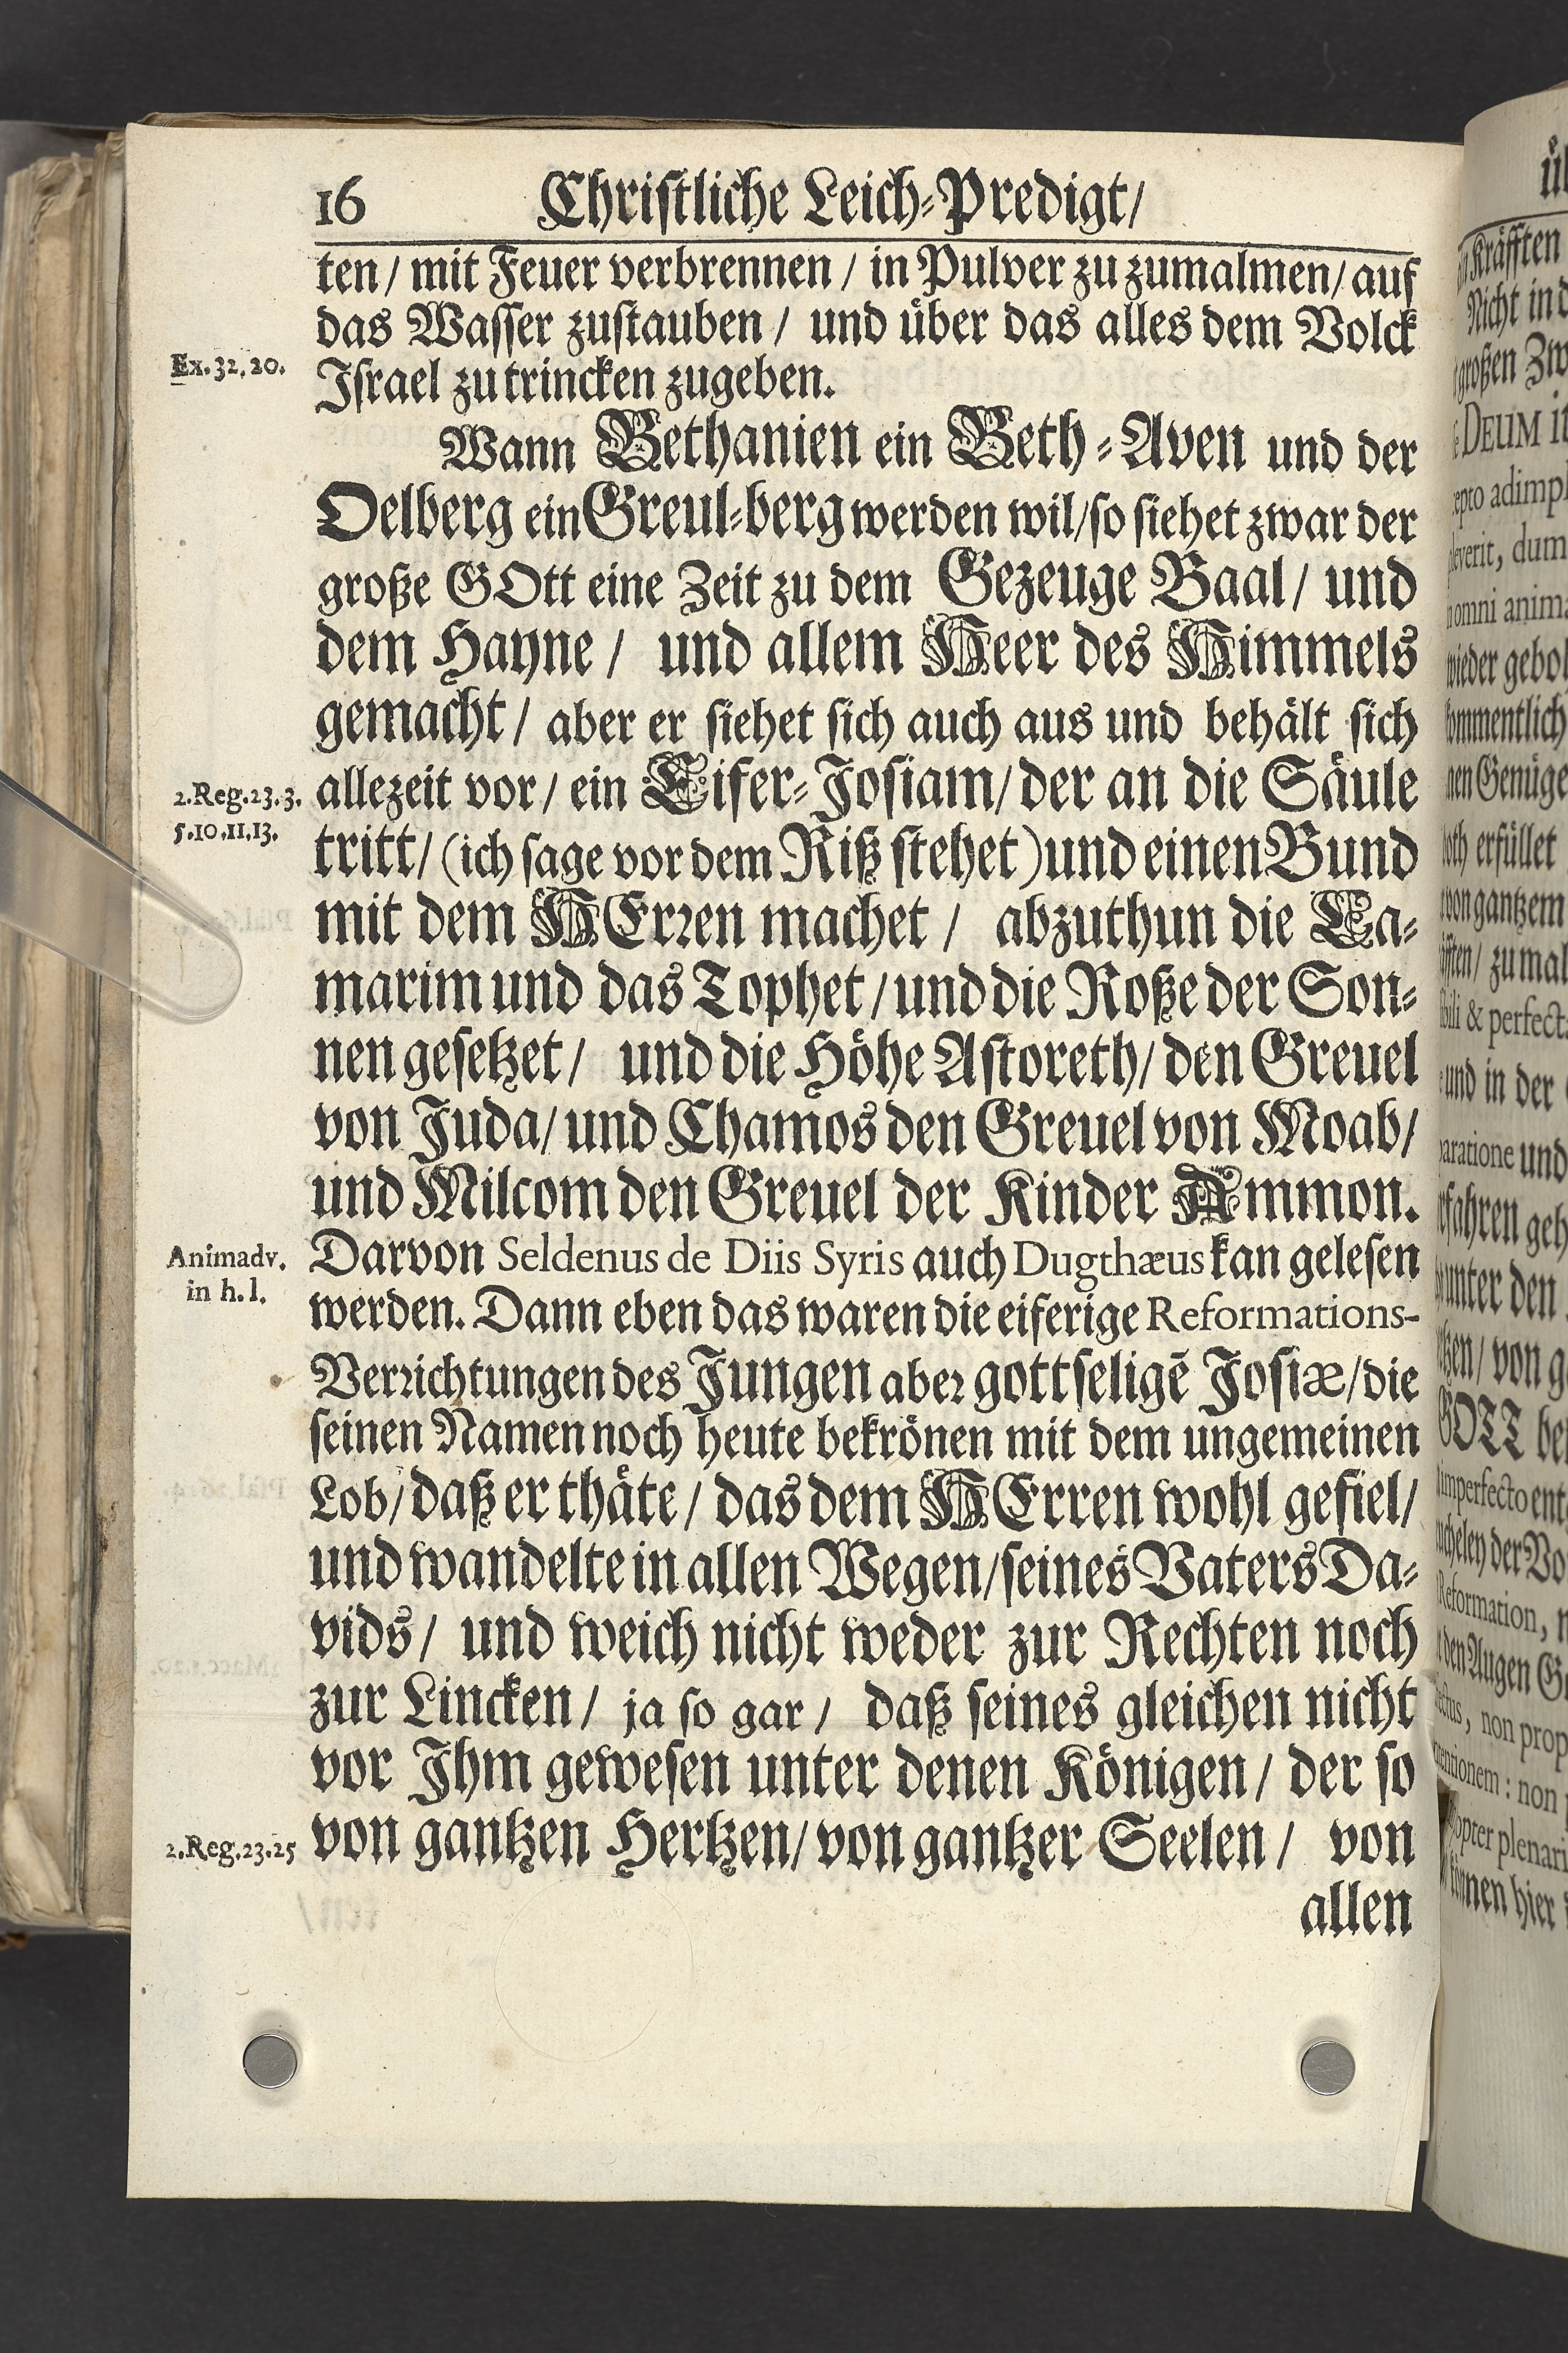 16 Christliche Leich-Predigt/
ten/ mit Feuer verbrennen / in Pulver zu zumalmen/ auf
das Wasser zustauben / und über das alles dem Volck
Ex. 32. 20.
Israel zu trincken zugeben.
Wann Bethanien ein Beth-Aven und der
Oelberg ein Greul-berg werden wil/so siehet zwar der
große GOtt eine Zeit zu dem Gezeuge Baal/ und
dem Hayne / und allem Heer des Himmels
gemacht/ aber er siehet sich auch aus und behält sich
2. Reg. 23. 3.
allezeit vor/ ein Eifer-Josiam/ der an die Säule
5. 10. 11. 13.
tritt/ (ich sage vor dem Riß stehet) und einen Bund
mit dem HErren machet / abzuthun die Ca-
marim und das Tophet / und die Roße der Son-
nen gesetzet/ und die Höhe Astoreth/ den Greuel
von Juda/ und Chamos den Greuel von Moab/
und Milcom den Greuel der Kinder Ammon.
Animadv.
Darvon Seldenus de Diis Syris auch Dugthæus kan gelesen
in h. l.
werden. Dann eben das waren die eiferige Reformations-
Verrichtungen des Jungen aber gottseligē Josiæ/die
seinen Namen noch heute bekrönen mit dem ungemeinen
Lob/ daß er thäte / das dem HErren wohl gefiel/
und wandelte in allen Wegen/seines Vaters Da-
vids / und weich nicht weder zur Rechten noch
zur Lincken / ja so gar / daß seines gleichen nicht
vor Ihm gewesen unter denen Königen / der so
2. Reg. 23. 25
von gantzen Hertzen/ von gantzer Seelen / von
allen